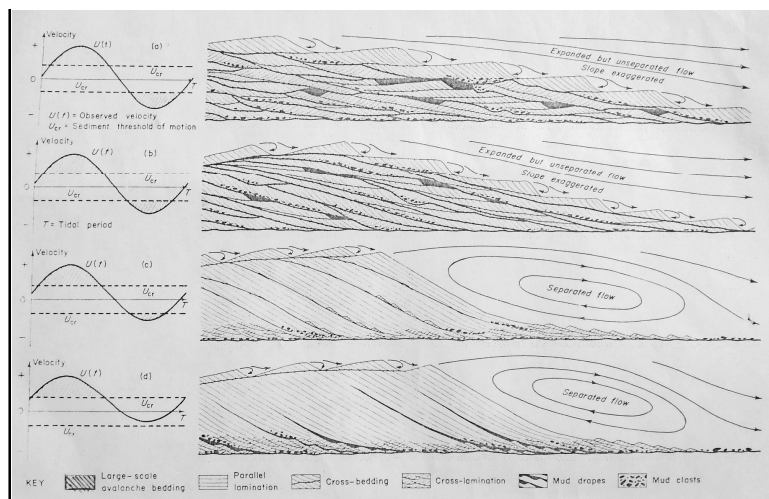 Velocity
+
U(t)
(a)
Ucr
0
T
Ucr
-
U(t) = Observed velocity
Ucr = Sediment threshold of motion
Expanded but unseparated flow
Slope exaggerated
Velocity
+
U(t)
(b)
Ucr
0
T
Ucr
-
T = Tidal period
Expanded but unseparated flow
Slope exaggerated
Velocity
+
U(t)
(c)
Ucr
0
T
Ucr
-
Separated flow
Velocity
+
U(t)
(d)
Ucr
T
-
Separated flow
KEY
Large-scale
avalanche bedding
Parallel
lamination
Cross-bedding
Cross-lamination
Mud drapes
Mud clasts